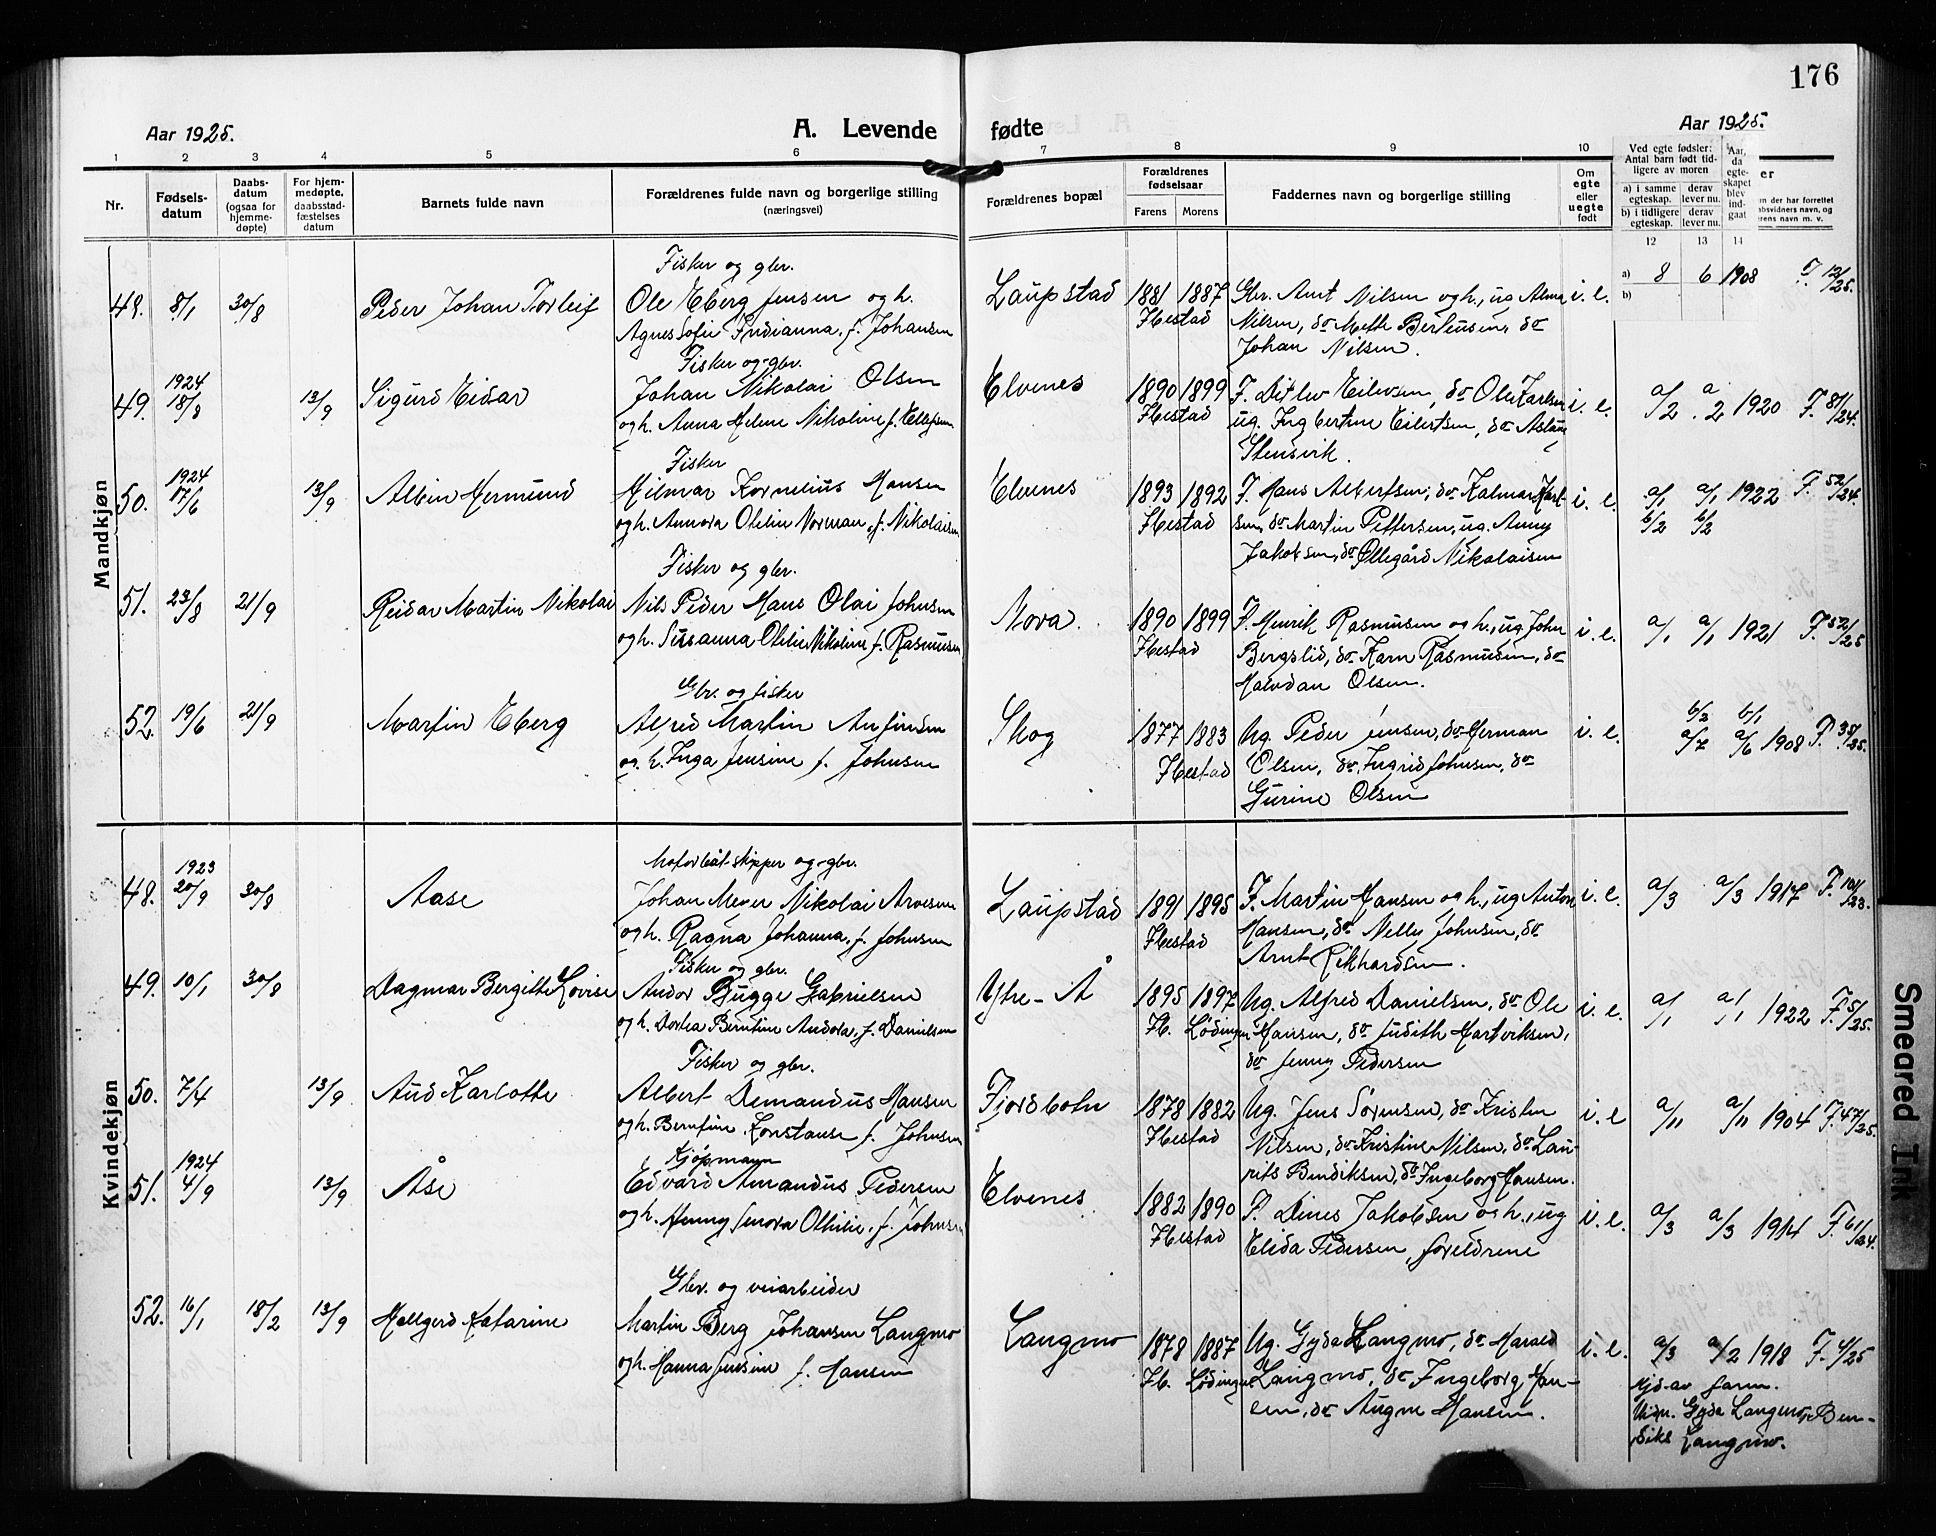 176
Aar 1925.
A. Levende fødte
Aar 1925.
1 2 3 4 5 6 7 8 9 10
Nr.
Fødsels-
datum
Daabs-
datum
(ogsaa for
hjemme-
døpte)
For hjem-
medøpte,
daabsstad-
fæstelses
datum
Barnets fulde navn
Forældrenes fulde navn og borgerlige stilling
(næringsvei)
Forældrenes bopæl
Forældrenes
fødselsaar
Farens Morens
Faddernes navn og borgerlige stilling
Om
egte
eller
uegte
født
Ved egte fødsler:
Antal barn født tid-
ligere av moren
a) i samme
egteskap.
derav
lever nu.
b) i tidligere
egteskap.
derav
lever nu.
Aar,
da
egte-
skapet
blev
ind-
gaat
er
n der har forrettet
absvidners navn, og
rens navn m. v.
12 13 14
Mandkjøn
Fisker og gbr.
48. 8/1 30/8 Peder Johan Torleif Ole Eberg Jensen og h. Laupstad 1881 1887 Gbr. Arnt Nilsen og h., ug. Alma i. e. a) 8 6 1908 F 12/25.
b)
Agnes Sofie Indianna, f. Johansen Ibestad Nilsen, do Meth Berteusen, do
Johan Nilsen.
Fisker og gbr.
49. 1924 18/8 13/9 Sigurd Eidar Johan Nikolai Olsen Elvenes 1890 1899 F. Ditlev Eilersen, do Ole Karlsen i. e. a/2 a/2 1920 F. 81/24.
og h. Anna Helene Nikoline f. Ellefsen Ibestad ug. Ingbertine Eilertsen, do Aslaug
Stensvik.
Fisker
50. 1924 17/6 13/9 Albin Hermund Hilmar Kornelius Hansen Elvenes 1893 1892 F. Hans Albertsen, do Kalmar Hart- i. e. a/1 a/1 1922 F. 52/24.
og h. Annora Otelie Norman, f. Nikolaisen Ibestad sen, do Martin Pettersen, ug. Anny b/2 b/2
Jakobsen, do Ollegård Nikolaisen
Fisker og gbr.
51. 23/8 21/9 Reidar Martin Nikolai Nils Peder Hans Olai Johnsen Nora. 1890 1899 F. Henrik Rasmusen og h., ug. John i. e. a/1 a/1 1921 F. 52/25
og h. Susanna Otelie Nikoline f. Rasmusen Ibestad Bergslid, do Karn Rasmusen, do
Halvdan Olsen.
Gbr. og fisker
52. 19/6 21/9 Martin Eberg Alfred Martin Anfinsen Skog 1877 1883 Ug. Peder Jensen, do Herman i. e. b/2 b/1
og h. Inga Jensine f. Johnsen Ibestad Olsen, do Ingrid Johnsen, do a/7 a/6 1908 F. 35/25.
Gurine Olsen
Kvindekjøn
Motorbåt-skipper og gbr.
48. 1923 20/9 30/8 Aase Johan Meyer Nikolai Arnesen Laupstad 1891 1895 F. Martin Hansen og h., ug. Anton i. e. a/3 a/3 1917 F. 101/23.
og h. Ragna Johanna, f. Johnsen Ibestad Hansen, do Nelly Johnsen, do
Arnt Rikhardsen.
Fisker og gbr.
49. 10/1 30/8 Dagmar Bergitte Lovise Andor Bygge Gabrielsen Ytre-Å 1895 1897 Ug. Alfred Danielsen, do Ole i. e. a/1 a/1 1922 F. 5/25.
og h. Dortea Berntine Andora, f. Danielsen Ib. Lødingen Hansen, do Judith Hartviksen,
do Jenny Pedersen
Fisker og gbr.
50. 7/4 13/9 Aud Karlotte Albert Demandus Hansen Fjordbotn 1878 1882 Ug. Jens Sørensen, do Kristen i. e a/11 a/11 1904 F. 47/25.
og h. Berntine Konstanse f. Johnsen Ibestad Nilsen, do Kristine Nilsen, do Lau-
rits Bendiksen, do Ingeborg Hansen.
Kjøpmann
51. 1924 4/9 13/9 Åse Edvard Amandus Pedersen Elvenes 1882 1890 S. Dines Jakobsen og h., ug i. e. a/3 a/3 1914 F. 61/24.
og h. Henny Jenora Othilie, f. Johnsen Ibestad Elida Pedersen, foreldrene
Gbr. og veiarbeider
52. 16/1 18/2 13/9 Hallgerd Katarine Martin Berg Johansen Langmo Langmo 1878 1887 Ug. Gyda Langmo, do Harald i. e. a/3 a/2 1918 F. 4/25
og h. Hanna Jensine f. Hansen Ib. Lødingen Langmo, do Ingeborg Han- Hjd. av farm.
sen, do Augne Hansen. Vidn. Gyda Langmo, Ben-
diks Langmo.
Smeared Ink